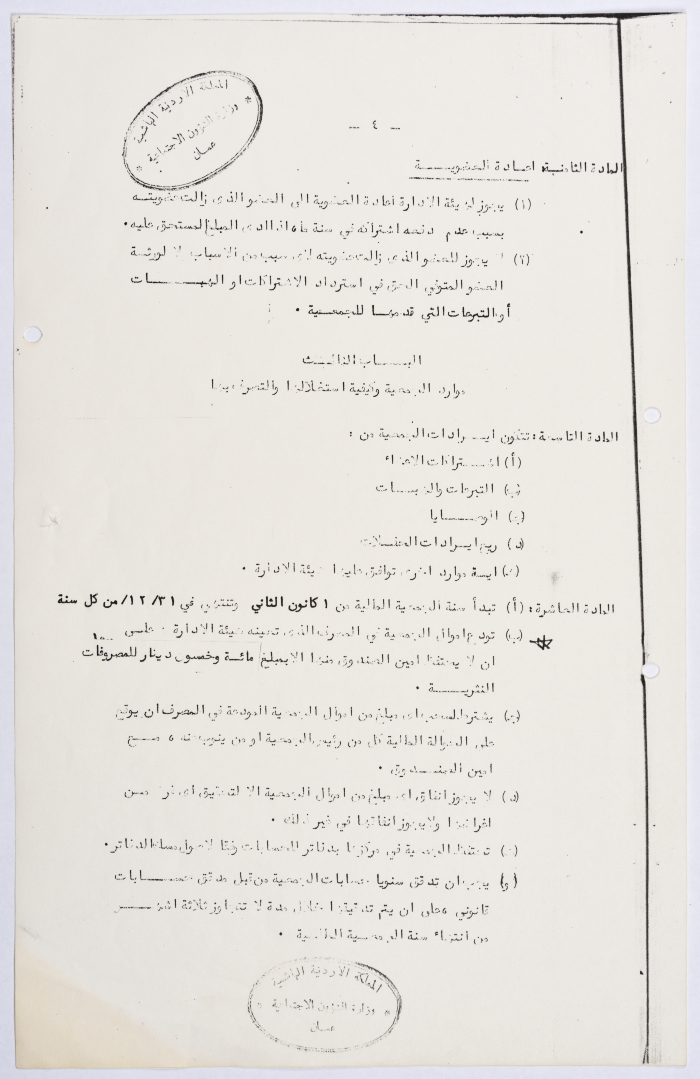 المملكة الأردنية الهاشمية
وزارة الشؤون الاجتماعية
عمان
- ٤ -
المادة الثامنة: اعادة العضويــــة
(١) يجوز لهيئة الادارة اعادة العضوية الى العضو الذى زالت عضويته
بسبب عدم دفعه اشتراكه في سنة ما اذا ادى المبلغ المستحق عليه.
(٢) لا يجوز للعضو الذى زالت عضويته لاى سبب من الاسباب لا لورثة
العضو المتوفي الحق في استرداد الاشتراكات او الهبـــــات
أو التبرعات التي قدمها للجمعية.
البـــاب الثالــث
موارد الجمعية وكيفية استغلالها والتصرف بها
المادة التاسعة: تتكون ايـــرادات الجمعية من :
(أ) اشـــتراكات الاعضاء
(ب) التبرعات والهبـــات
(ج) الوصـــايا
(د) ريع ايــرادات الحفـــلات
(هـ) ايـــة موارد اخرى توافق عليها هيئة الادارة.
المادة العاشرة: (أ) تبدأ سنة الجمعية المالية من ١ كانون الثاني وتنتهي في ١٢/٣١/ من كل سنة
(ب) تودع اموال الجمعية في المصرف الذى تعينه هيئة الادارة. على
ان لا يحتفظ امين الصندوق منها الا بمبلغ مائة وخمسون دينار للمصروفات
النثريـــة.
(ج) يشترط لسحب اى مبلغ من اموال الجمعية المودعة في المصرف ان يوقع
على الحوالة المالية كل من رئيس الجمعية او من ينوب عنه ، مـــع
امين الصنـــدوق.
(د) لا يجوز انفاق اى مبلغ من اموال الجمعية الا لتحقيق اى غرض مـــن
اغراضها ولا يجوز انفاقها في غير ذلك.
(هـ) تحتفظ الجمعية في مركزها بدفاتر الحسابات وفقا لاصول مسك الدفاتر.
(و) يجب ان تدقق سنويا حسابات الجمعية من قبل مدقق حســـابات
قانوني ، على ان يتم تدقيقها خلال مدة لا تتجاوز ثلاثة اشهـــر
من انتهاء سنة الجمعية المالـــية.
المملكة الأردنية الهاشمية
وزارة الشؤون الاجتماعية
عمان